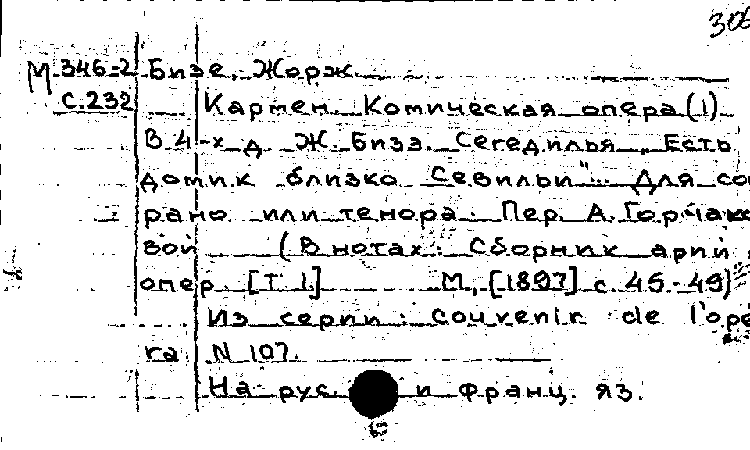 306
М 346-2 Бизе, Жорж
с.232 Кармен. Комическая опера (!)
В 4-х д. Ж. Бизэ. Сегедилья „Есть
домик близко Севильи"... Для соп
рано или тенора. Пер. А. Горчако
вой (В нотах: Сборник арий
опер. [Т 1] М, [1897] с. 45-49)
Из серии: Souvenir de l'opé
ra N 107.
На рус. и франц. яз.